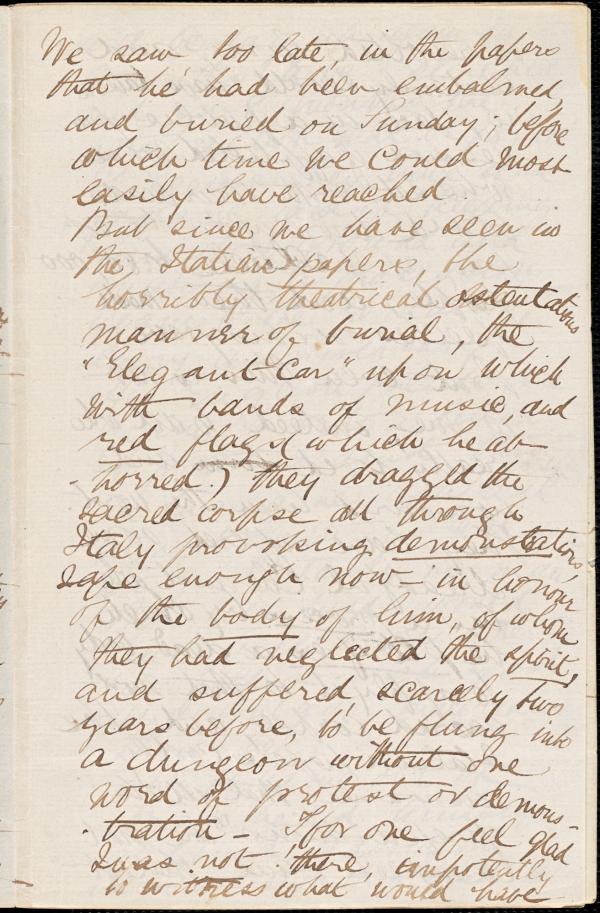 We saw too late, in the papers
that he had been embalmed,
and buried on Sunday; before
which time we could most
easily have reached.
But since we have seen in
the Italian papers, the
horribly theatrical ostentatious
manner of burial, the
"Elegant Car" upon which
with bands of music, and
red flags (which he ab-
-horred.) they draggled the
sacred corpse all through
Italy provoking demonstations,
safe enough now - in honour
of the body of him, of whom
they had neglected the spirit,
and suffered, scarcely two
years before, to be flung into
a dungeon without one
word of protest or demons-
-tration - I for one feel glad
I was not there, impotently
to witness what would have